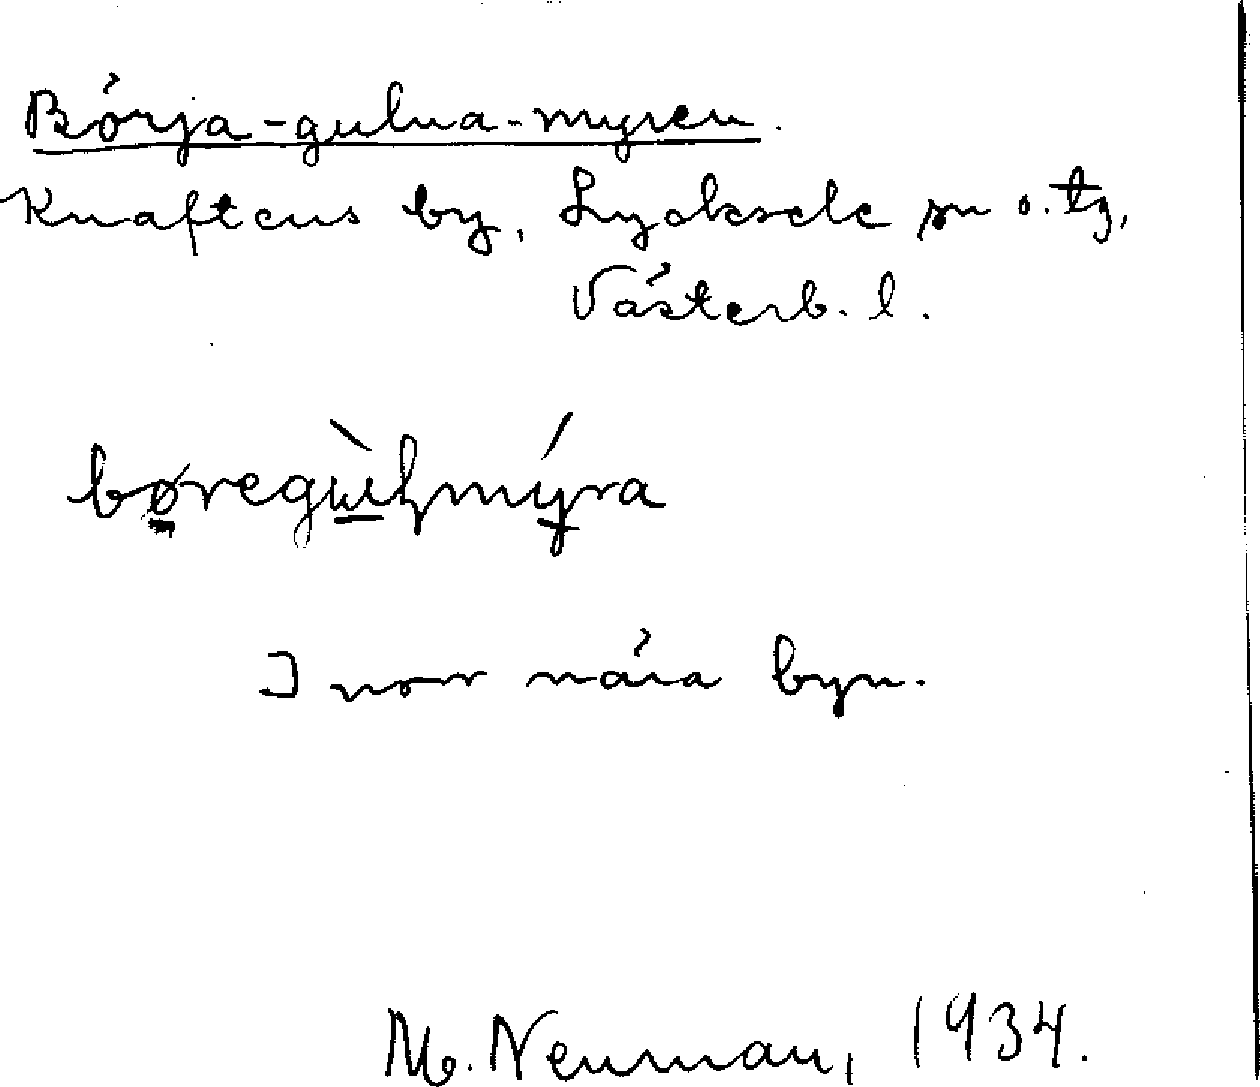 Börja-gulna-myren.
Knaftens by, Lycksele sn o. tg,
Västerb. l.
I norr nära byn.
M. Neuman, 1934.